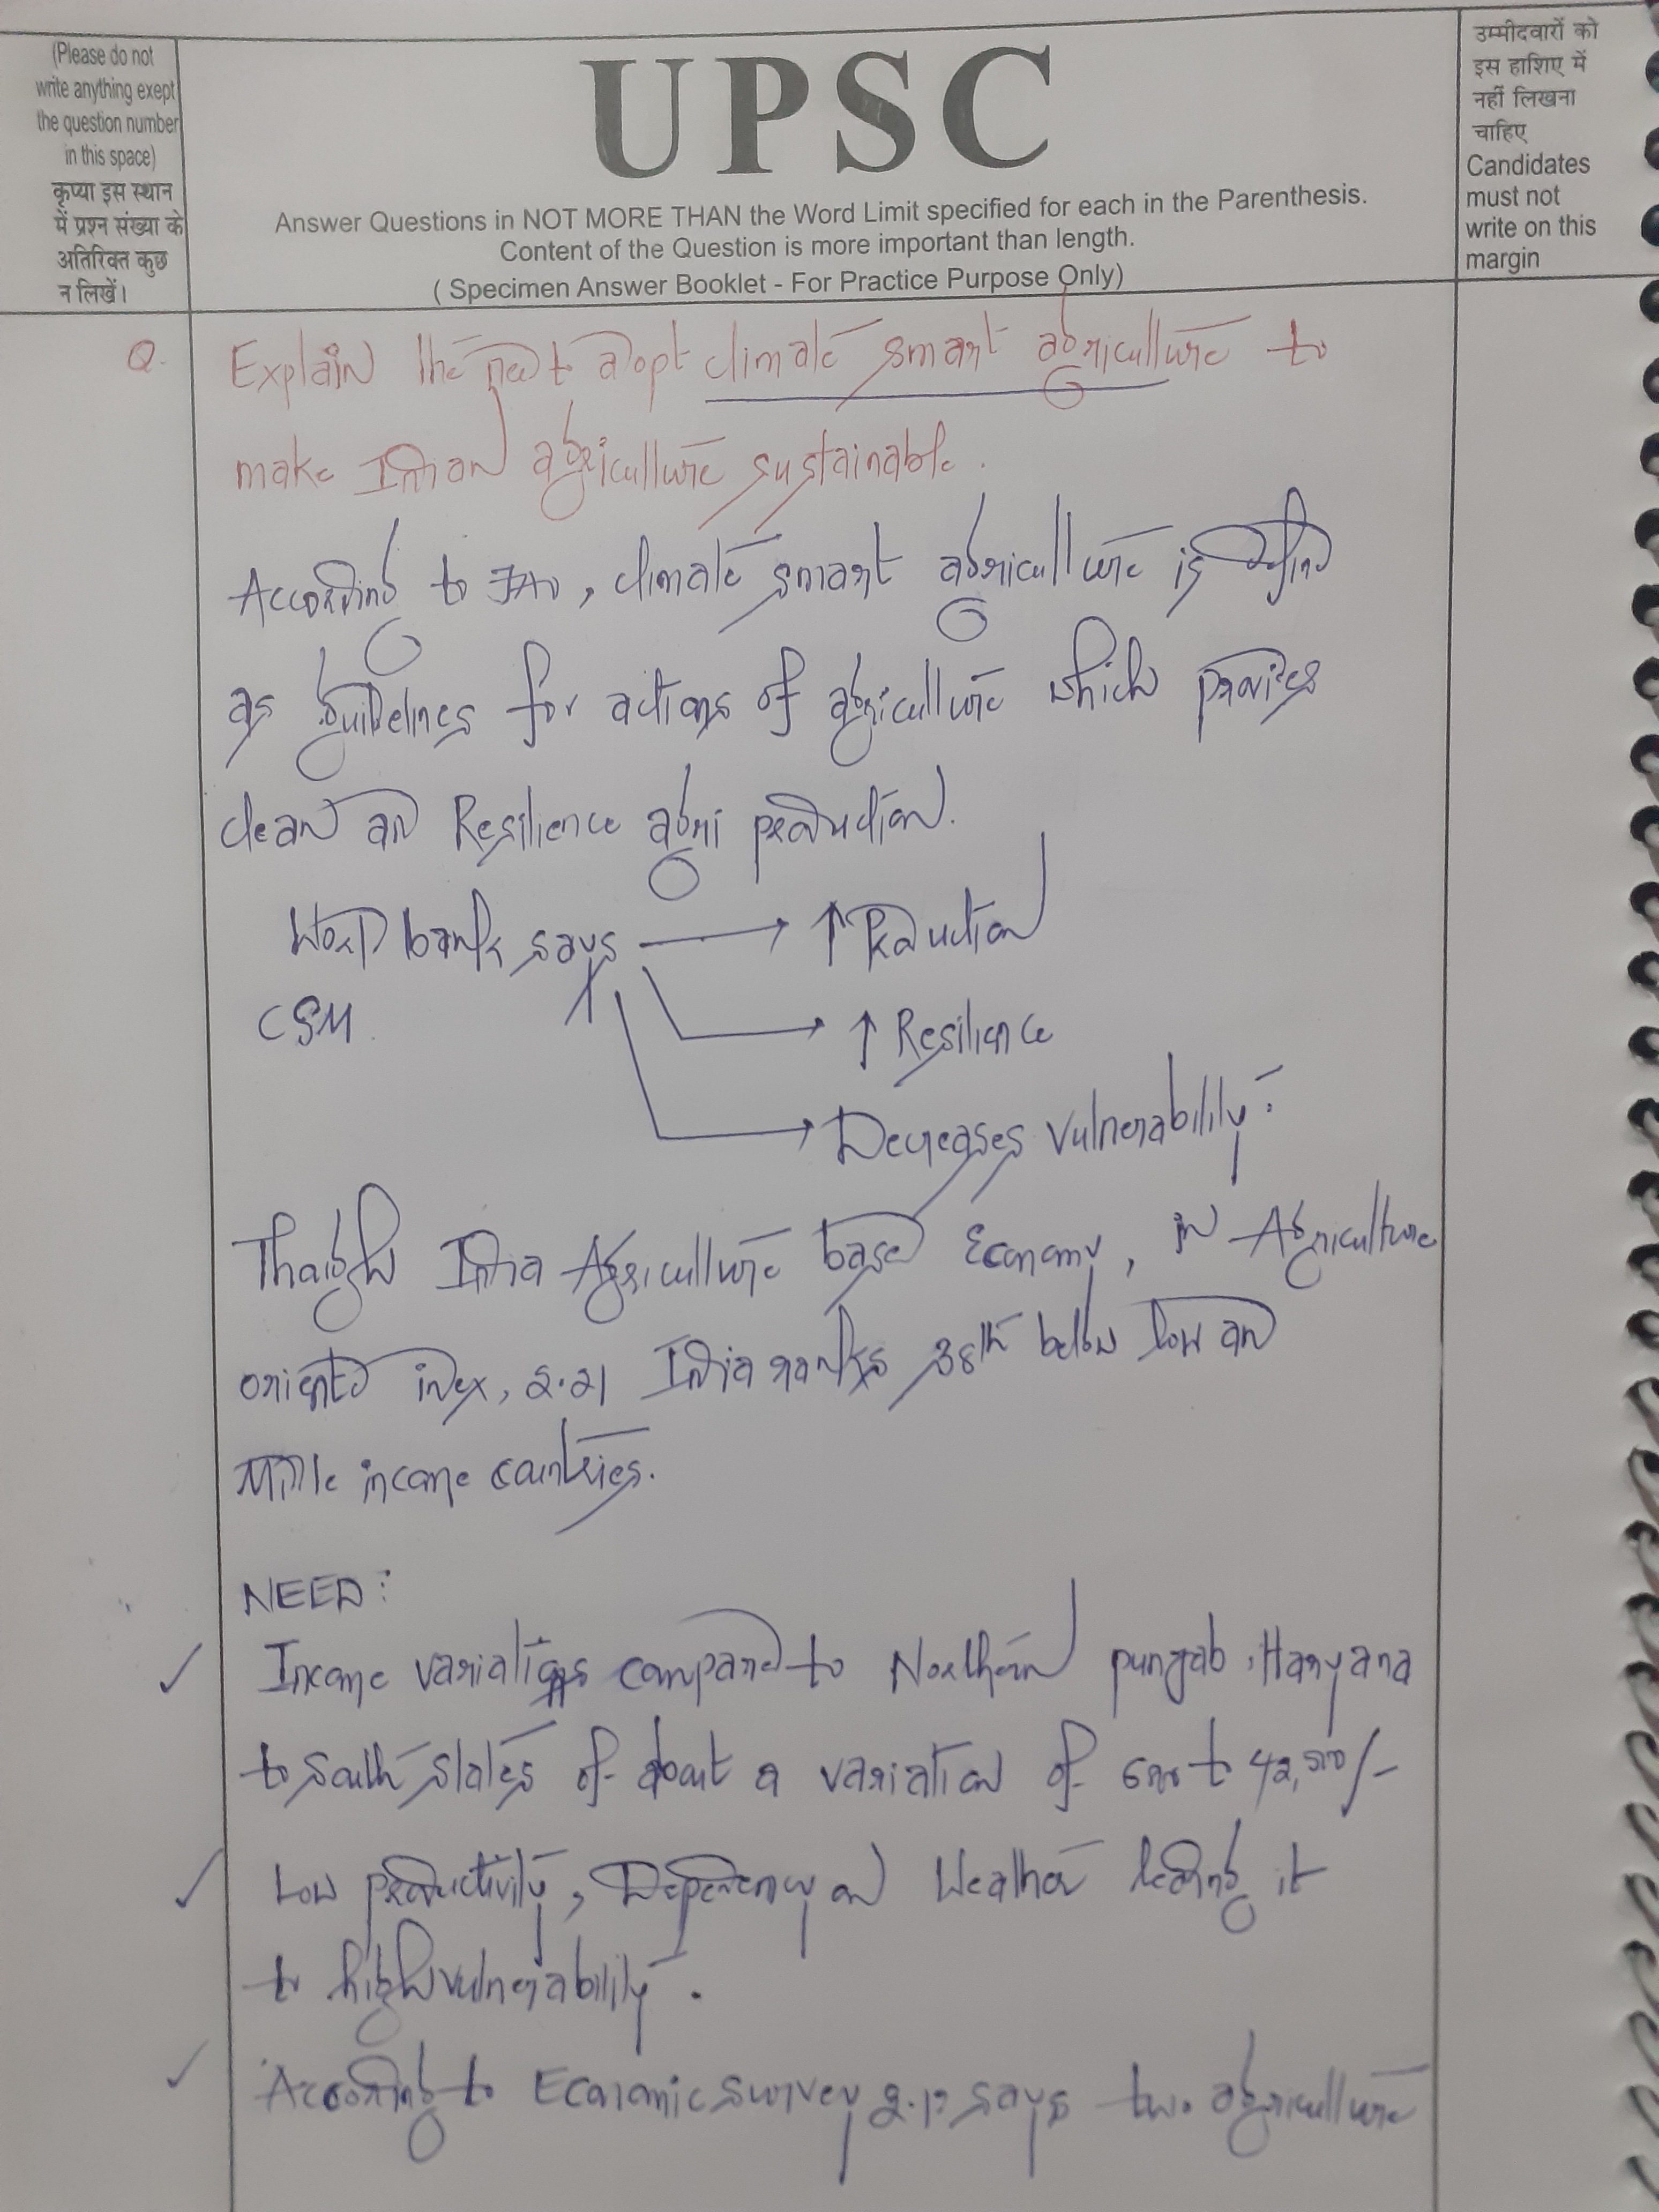 (Please do not
write anything exept
the question number
in this space)
कृप्या इस स्थान
में प्रश्न संख्या के
अतिरिक्त कुछ
न लिखें।
UPSC
Answer Questions in NOT MORE THAN the Word Limit specified for each in the Parenthesis.
Content of the Question is more important than length.
( Specimen Answer Booklet - For Practice Purpose Only)
उम्मीदवारों को
इस हाशिए में
नहीं लिखना
चाहिए
Candidates
must not
write on this
margin
Q. Explain the need to adopt climate smart agriculture to
make Indian agriculture sustainable.
According to FAO, climate smart agriculture is defined
as guidelines for actions of agriculture which provides
clean and Resilience agri production.
World bank says → ↑ Production
CSM. → ↑ Resilience
→ Decreases vulnerability.
Though India Agriculture based Economy, in Agriculture
oriented index, 2021 India ranks 38th below low and
Middle income countries.
NEED:
✓ Income variations compared to Northern punjab, Haryana
to south states of about a variation of to 42,500/-
✓ Low productivity, Dependency on Weather leading it
to high vulnerability.
✓ According to Economic survey says two agriculture